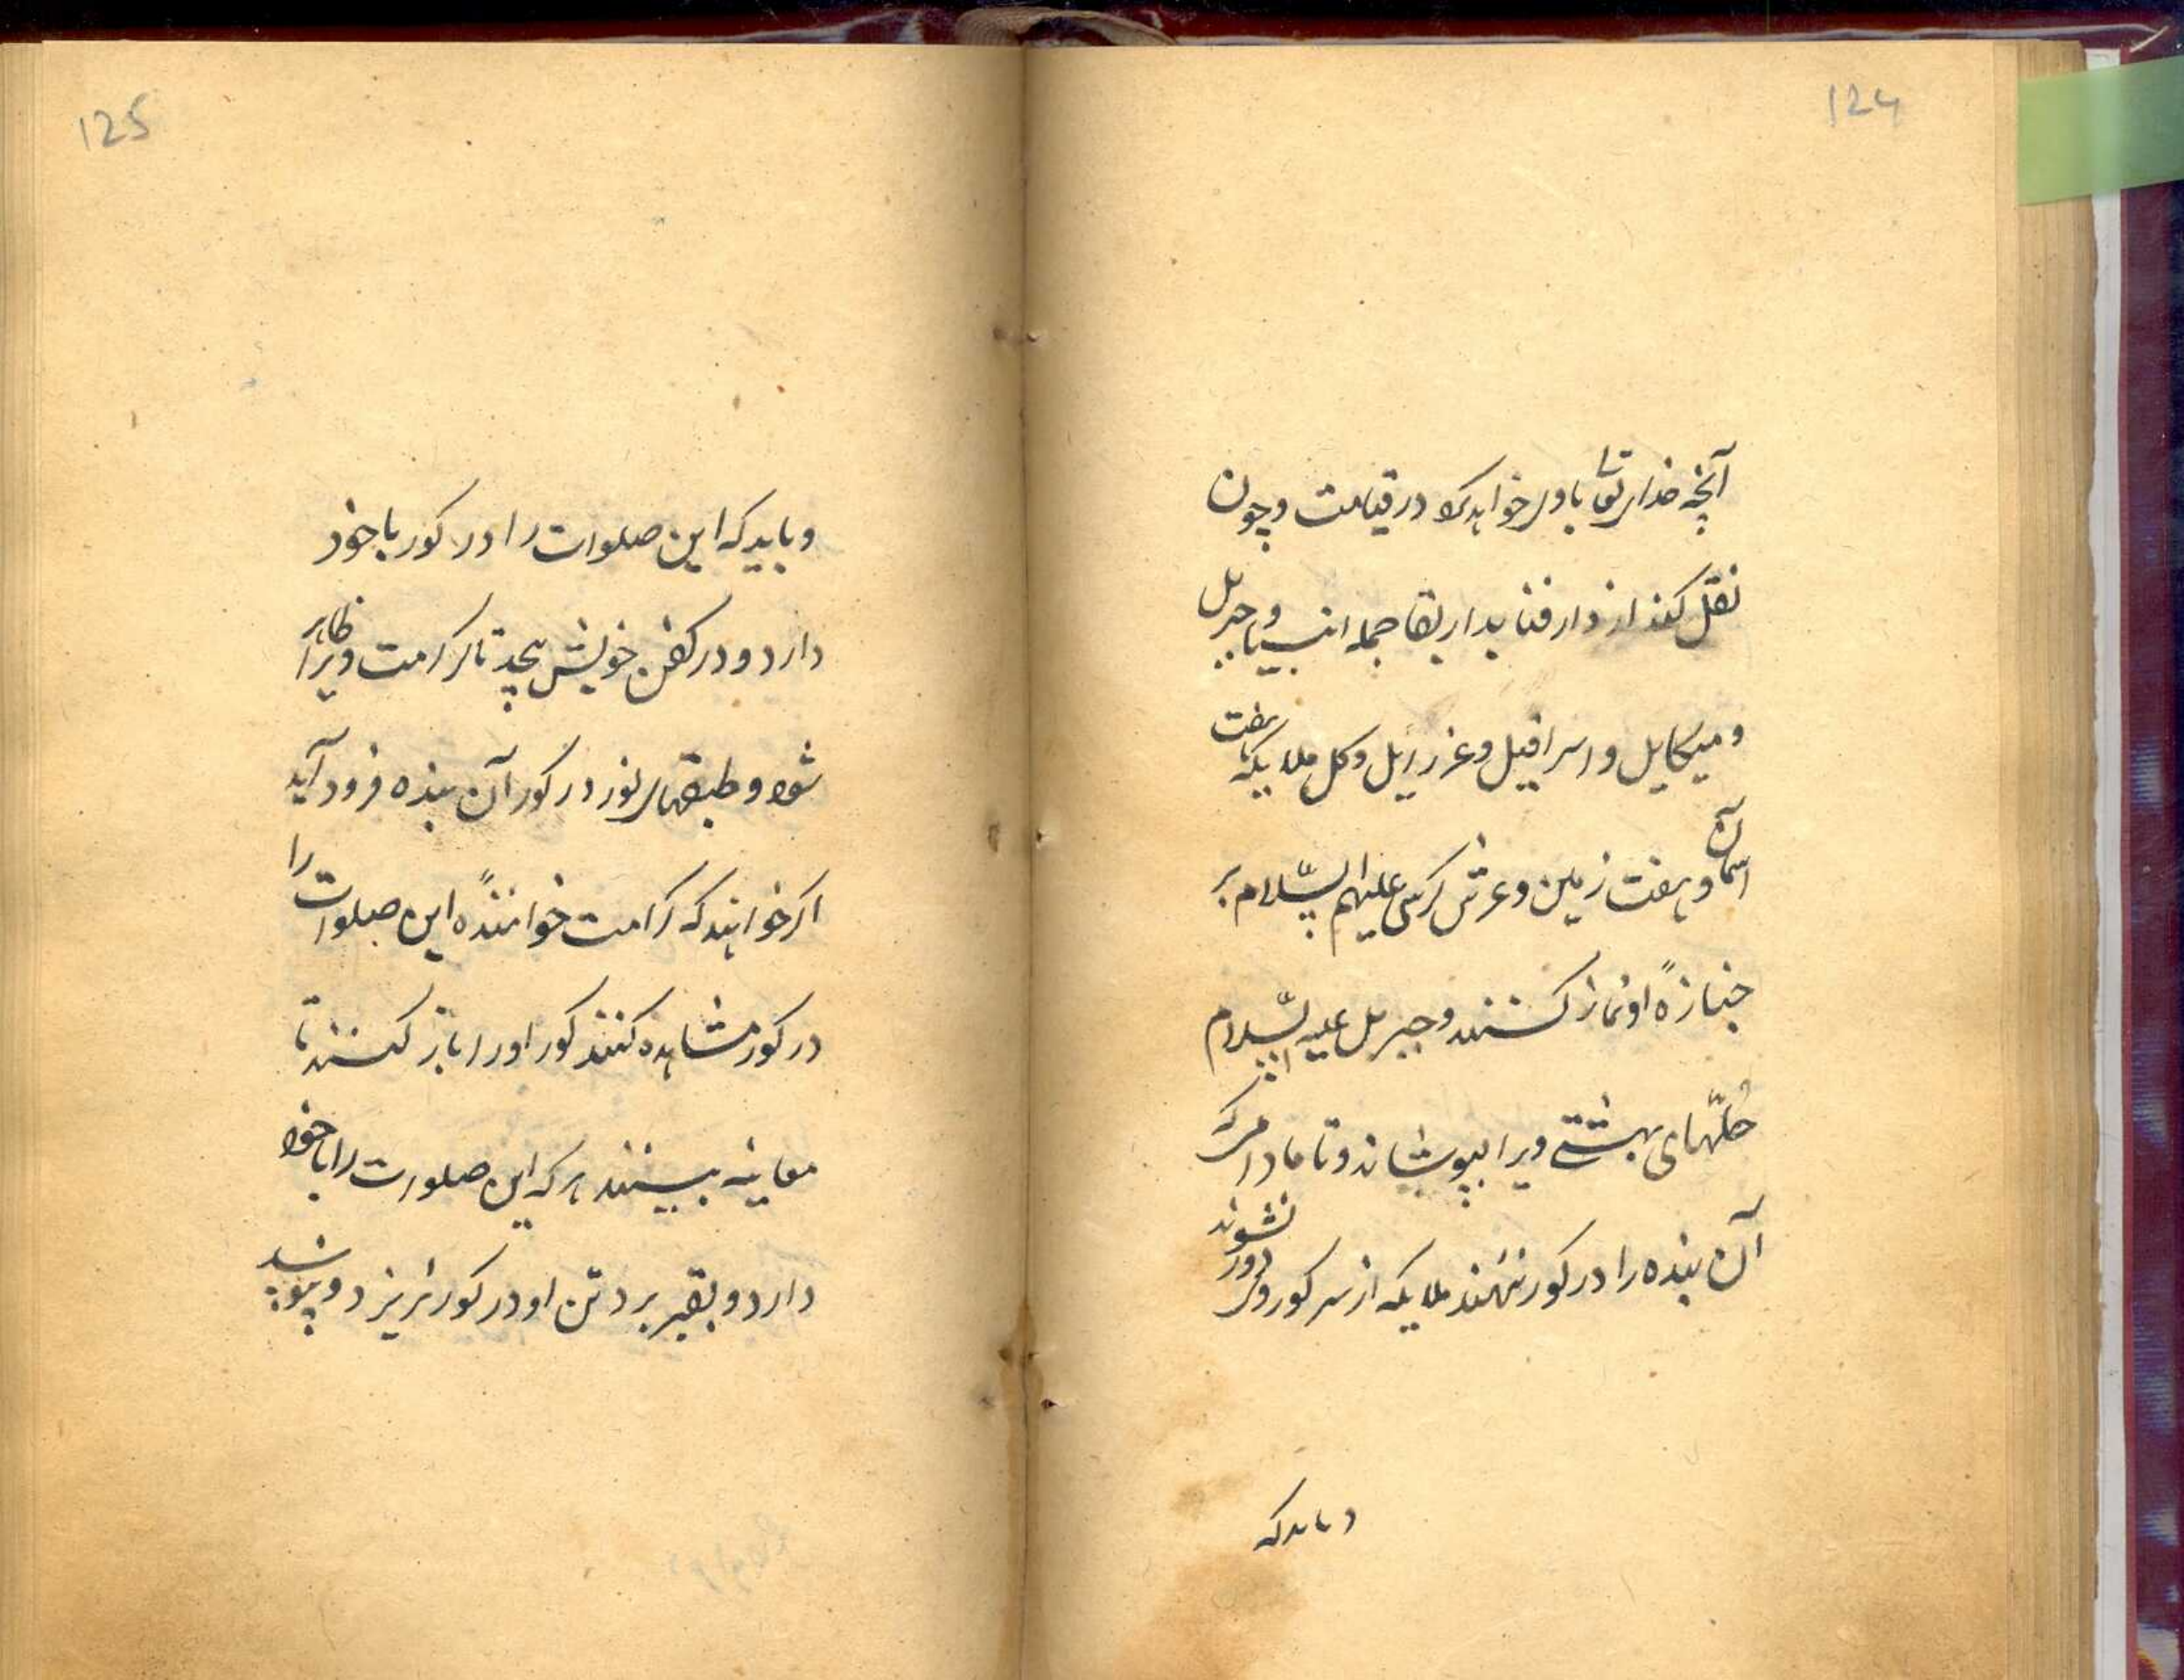 124
آنچه خدای تعا با وی خواهد کرد در قیامت و چون
نقل کند از دار فنا بدار بقا جمله انبیا و جبریل
و میکایل و اسرافیل و عزرایل و کل ملایکه هفت
آسمان و هفت زمین و عرش کرسی علیهم السّلام بر
جنازهٔ او نماز کنند و جبریل علیه السّلام
حُلّهای بهشتے ویرا بپوشاند و تا مادامرکه
آن بنده را در کور ننهند ملایکه از سر کور وی دور نشوند
و بایدکه
125
و باید که این صلوات را در کور با خود
دارد و در کفن خویش پیچد تا کرامت ویرا ظاهر
شود و طبقهای نور در کور آن بنده فرود آید
اکر خواهند که کرامت خوانندهٔ این صلوات را
در کور مشاهده کنند کور او را باز کنند تا
معاینه ببینند هر که این صلوات را با خود
دارد و بقبر برد تن او در کور نریزد و نپوسد